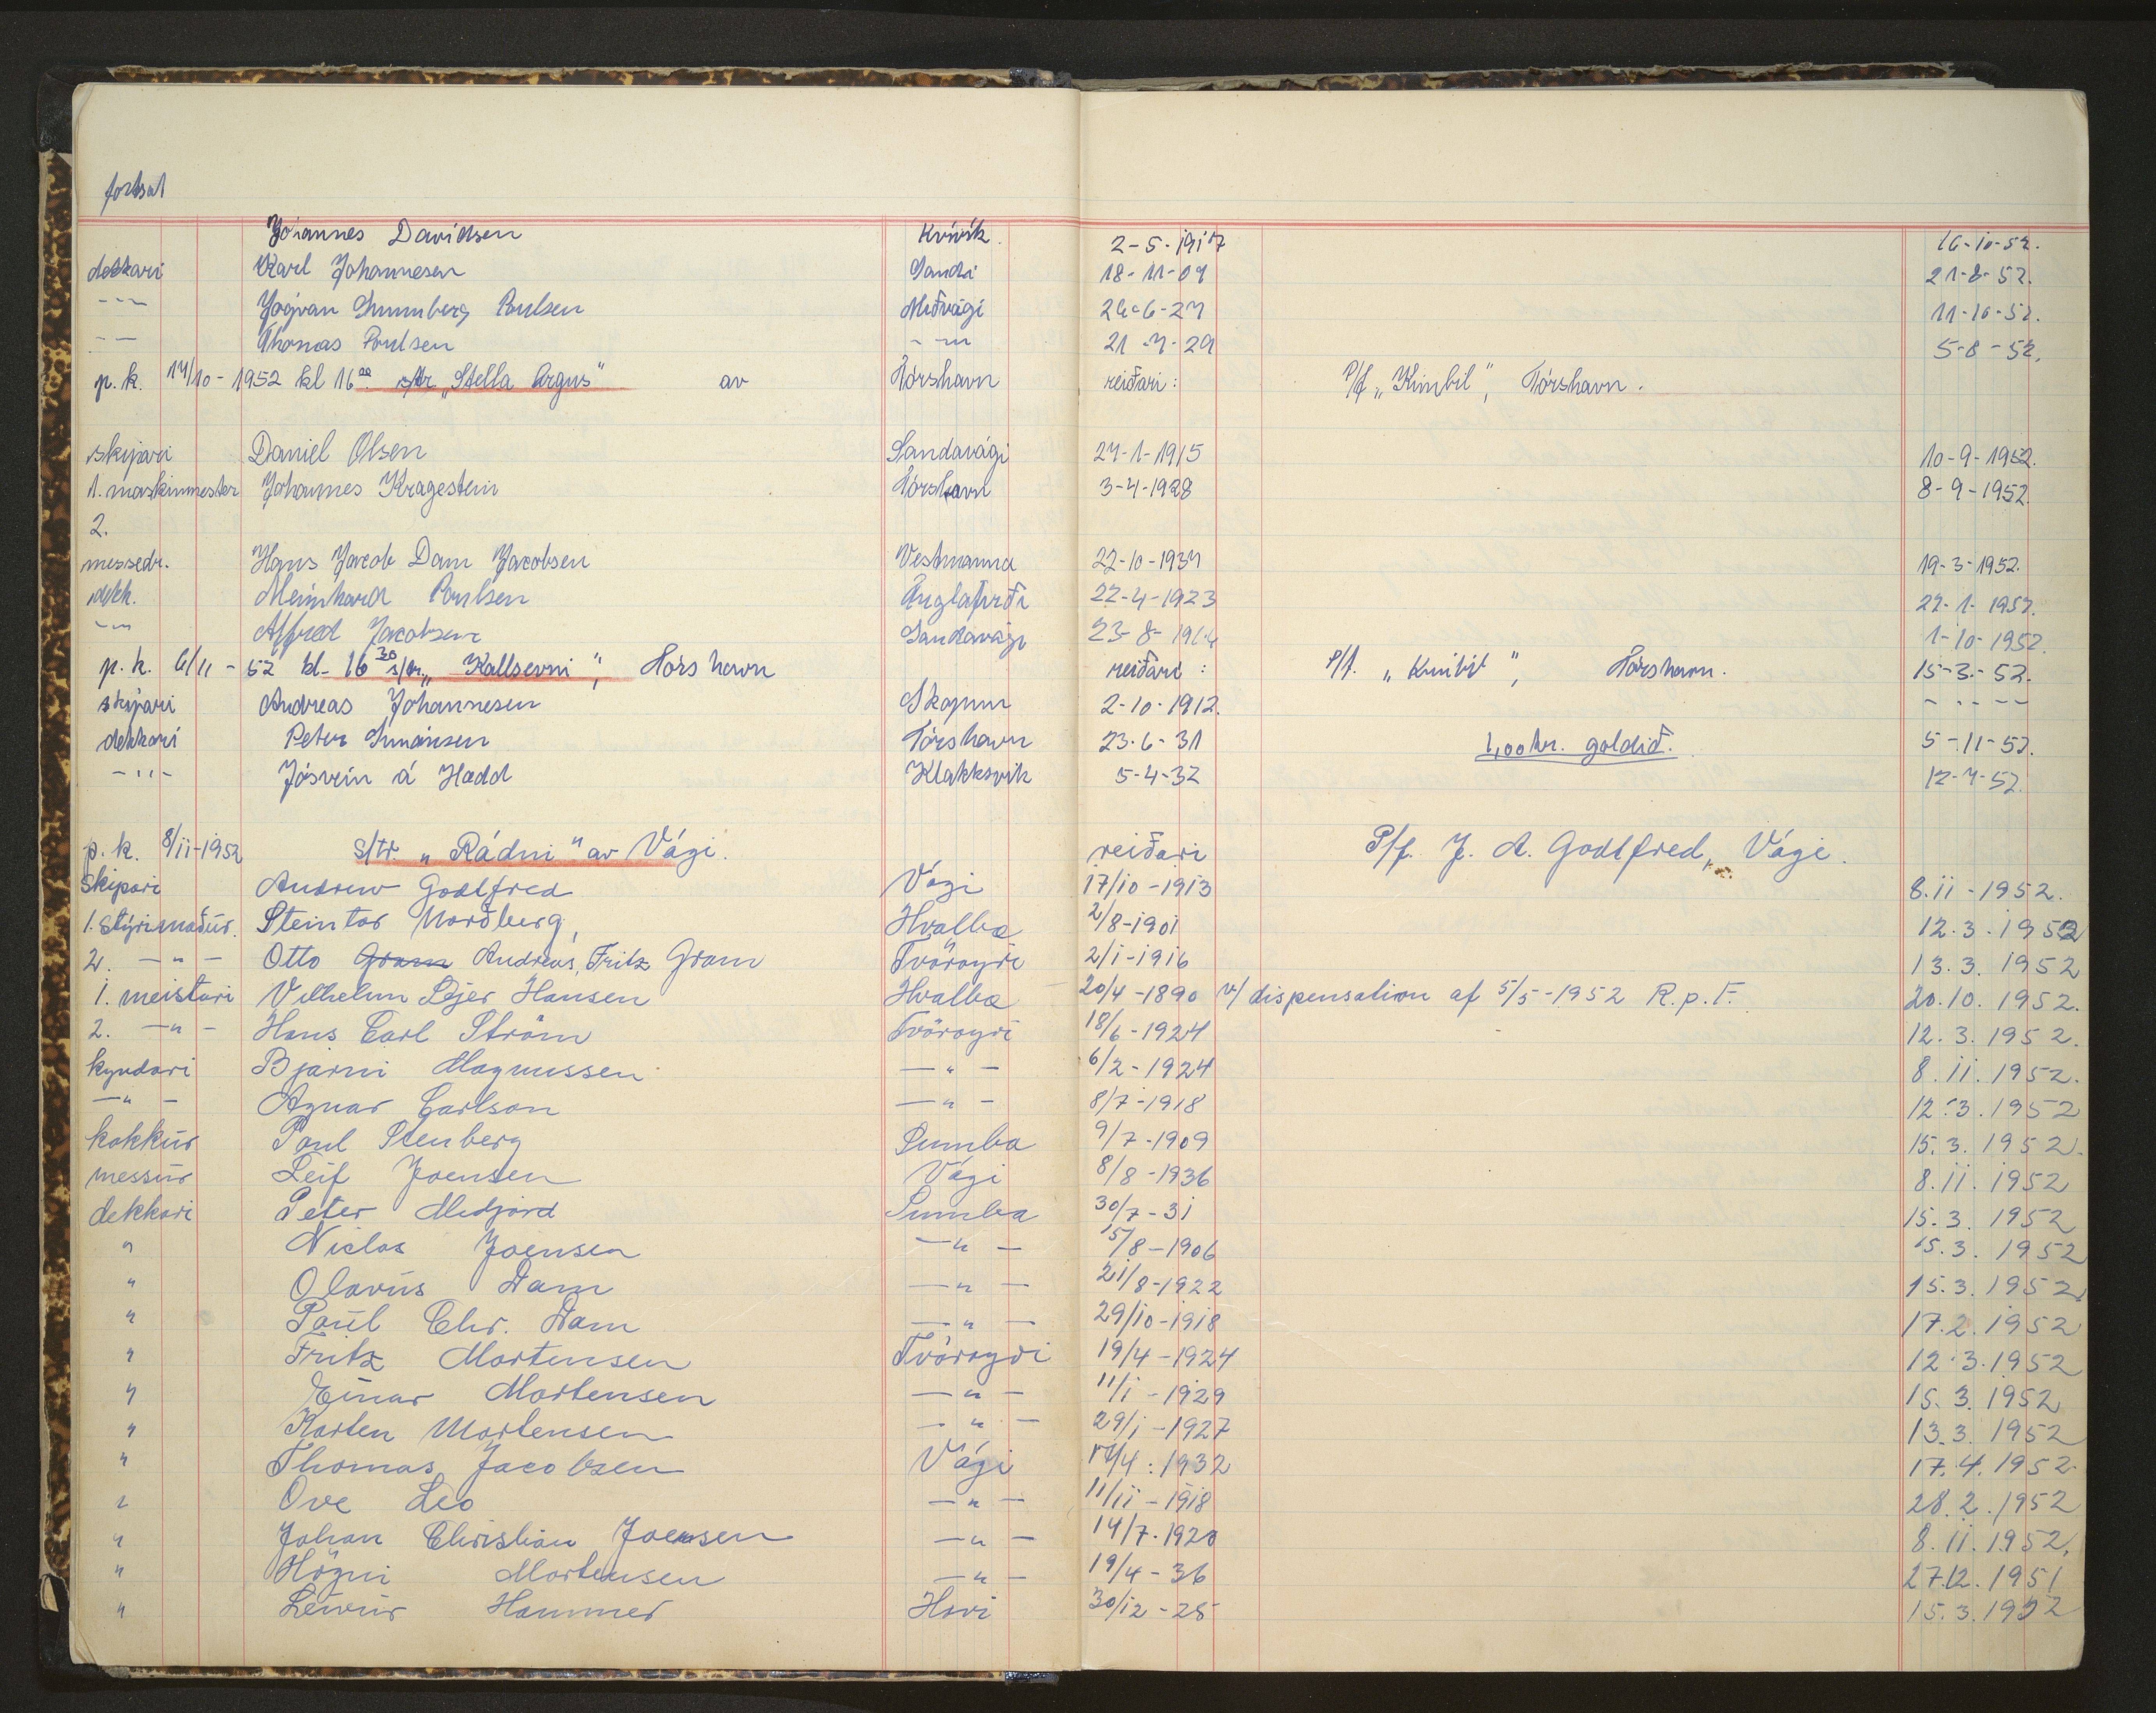 fortsat
Jóannes Davidsen Kvívík. 2-5-1917 16-10-52.
dekkari Karl Johannesen Sandi 18-11-09 21-8-52.
-"- Jógvan Sumberg Poulsen Miðvági 26-6-27 11-10-52.
-"- Thomas Poulsen -"- 21-7-29 5-8-52.
p.k. 14/10-1952 kl 16 00 s/tr „Stella Argus" av Tórshavn reiðari: P/f „Kimbil", Tórshavn.
skipari Daniel Olsen Sandavági 27-1-1915 10-9-1952.
1. maskinmester Johannes Kragesteen Tórshavn 3-4-1928 8-9-1952.
2.
messedr. Hans Jacob Dam Jacobsen Vestmanna 22-10-1937 19-3-1952.
dekk. Meinhard Poulsen Funglafirði 22-4-1923 22-1-1952.
-"- Alfred Jacobsen Sandavági 23-8-1914 1-10-1952.
p.k. 6/11-52 kl. 16 30 s/tr. „Kallsevni", Tórshavn reiðari: P/f. „Kimbil", Tórshavn. 15-3-52.
skipari Andreas Johannesen Skopun 2-10-1912. -"-
dekkari Peter Simonsen Tórshavn 23-6-31 1,00 kr. goldið. 5-11-52.
-"- Jósvein á Hædd Klakksvík 5-4-32 12-7-52.
p.k. 8/11-1952 s/tr. „Rádni" av Vági. reiðari P/f. J. A. Godtfred, Vági.
Skipari Andrew Godtfred Vági 17/10-1913 8.11-1952.
1. Stýrimaður. Steintor Norðberg, Hvalba 2/8-1901 12.3.1952
2. -"- Otto Gram Andreas, Fritz Gram Tvöroyri 2/1-1916 13.3.1952
1. meistari Vilhelm Lejer Hansen Hvalba 20/4-1890 v/ dispensation af 5/5-1952 R.p.F. 20.10.1952.
2. -"- Hans Carl Ström Tvöroyri 18/6-1924 12.3.1952.
kyndari Bjarni Magnussen -"- 6/2-1924 8.11.1952.
-"- Agnar Carlson -"- 8/7-1918 12.3.1952
kokkur Poul Stenberg Sumba 9/7-1909 15.3.1952.
messur Leif Joensen Vági 8/8-1936 8.11.1952
dekkari Peter Midjord Sumba 30/7-31 15.3.1952
" Niclas Joensen -"- 15/8-1906 15.3.1952
" Olavus Dam -"- 21/8-1922 15.3.1952
" Poul Chr. Dam -"- 29/10-1918 17.2.1952
" Fritz Mortensen Tvöroyri 19/4-1924 12.3.1952
" Einar Mortensen -"- 11/1-1929 15.3.1952
" Karten Mortensen -"- 29/1-1927 13.3.1952
" Thomas Jacobsen Vági 17/4.1932 17.4.1952.
" Ove Leo -"- 11/11-1918 28.2.1952
" Johan Christian Joensen -"- 14/7.1920 8.11.1952.
" Högni Mortensen -"- 19/4-36 27.12.1951
" Leivur Hammer Hovi 30/12-28 15.3.1952